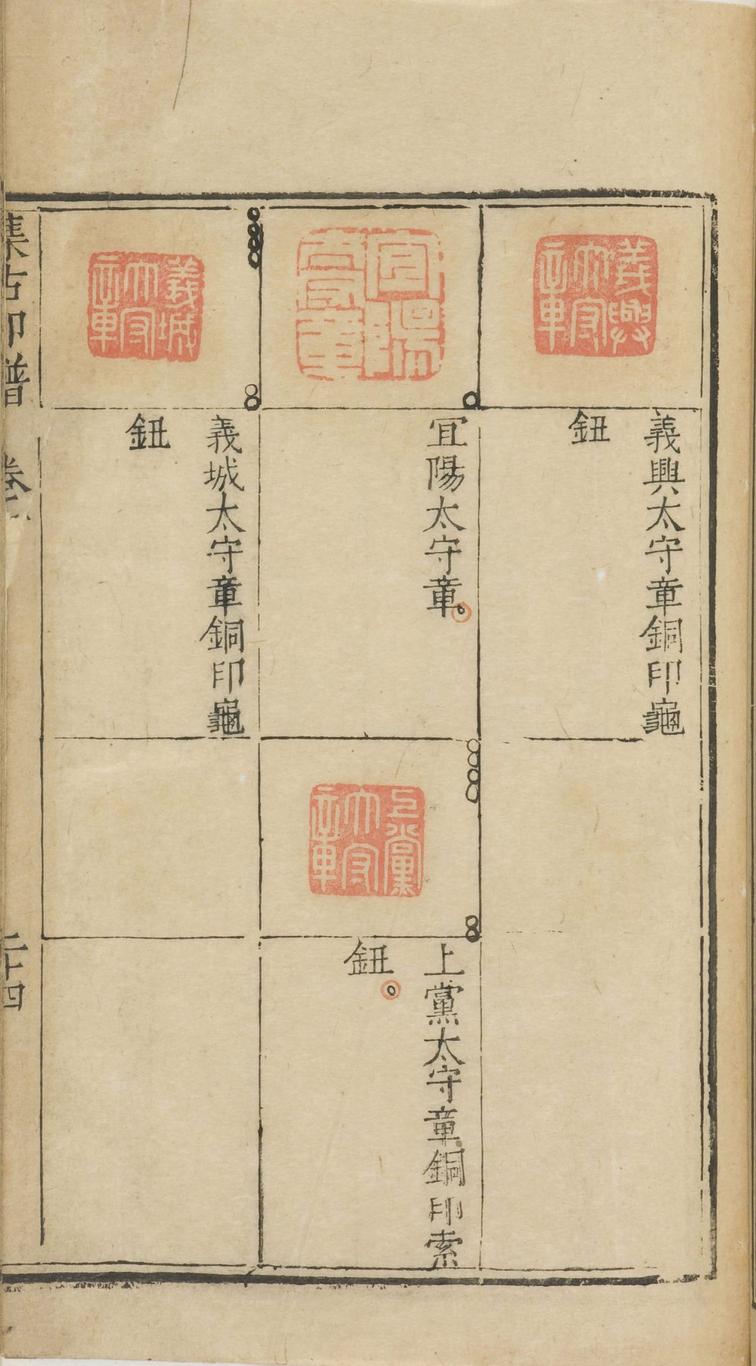 義興太守章
義興太守章銅印龜
鈕
宜陽太守章
宜陽太守章
上黨太守章
上黨太守章銅印索
鈕
義城太守章
義城太守章銅印龜
鈕
集古印譜
卷二
二十四